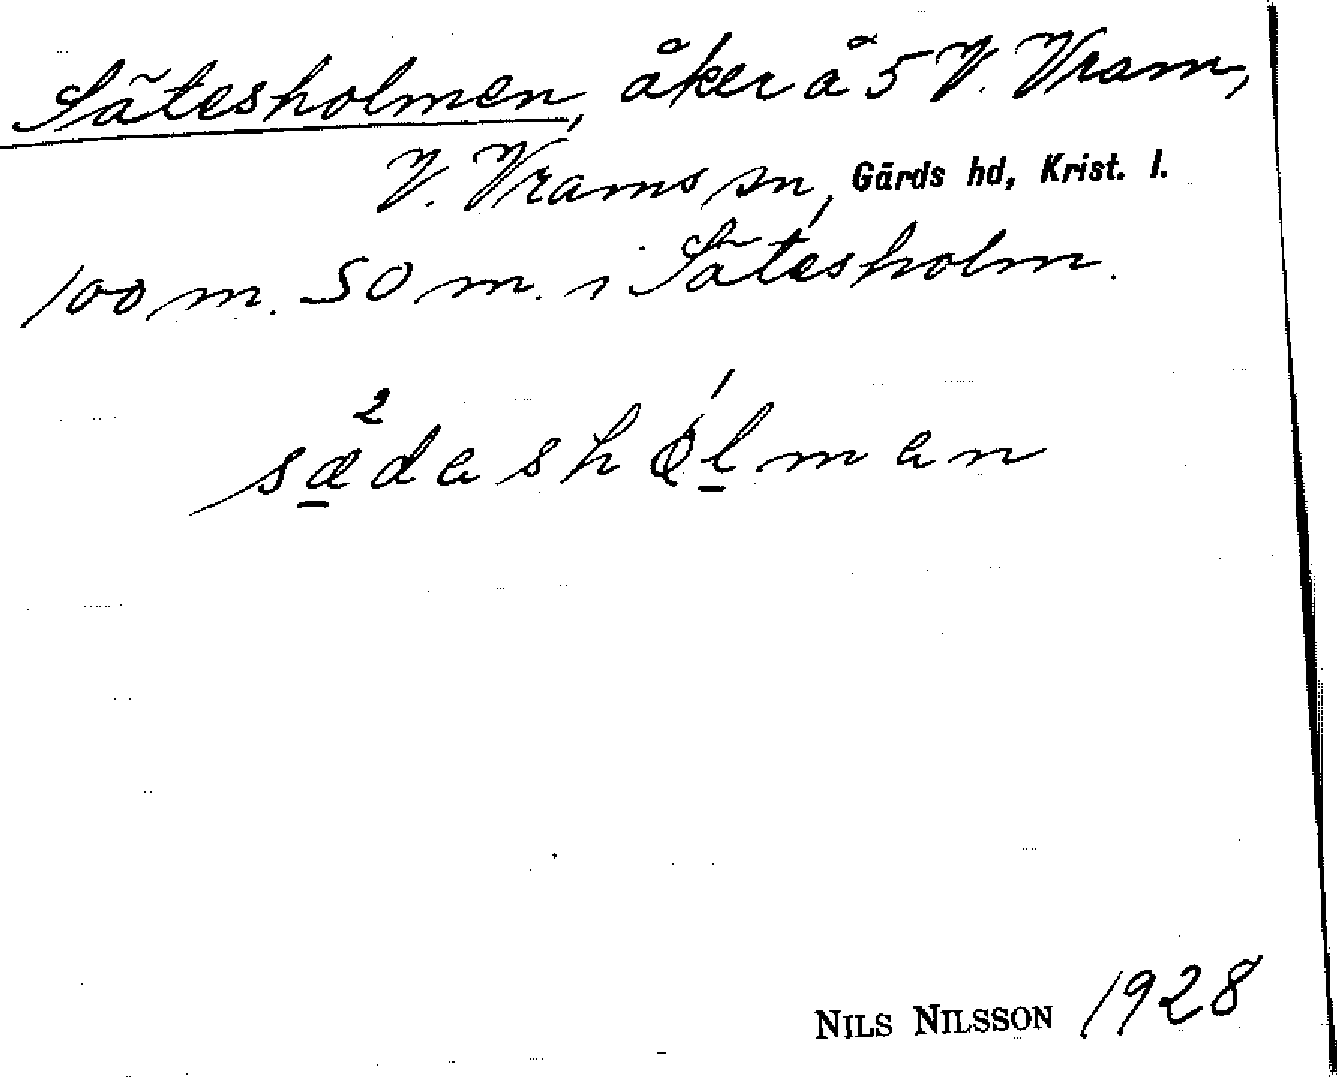 Sätesholmen, åker å 5 V. Vram,
V. Vrams sn, Gärds hd, Krist. l.
100 m. SO m. i Sätesholm.
sæ²dashólman
NILS NILSSON 1928